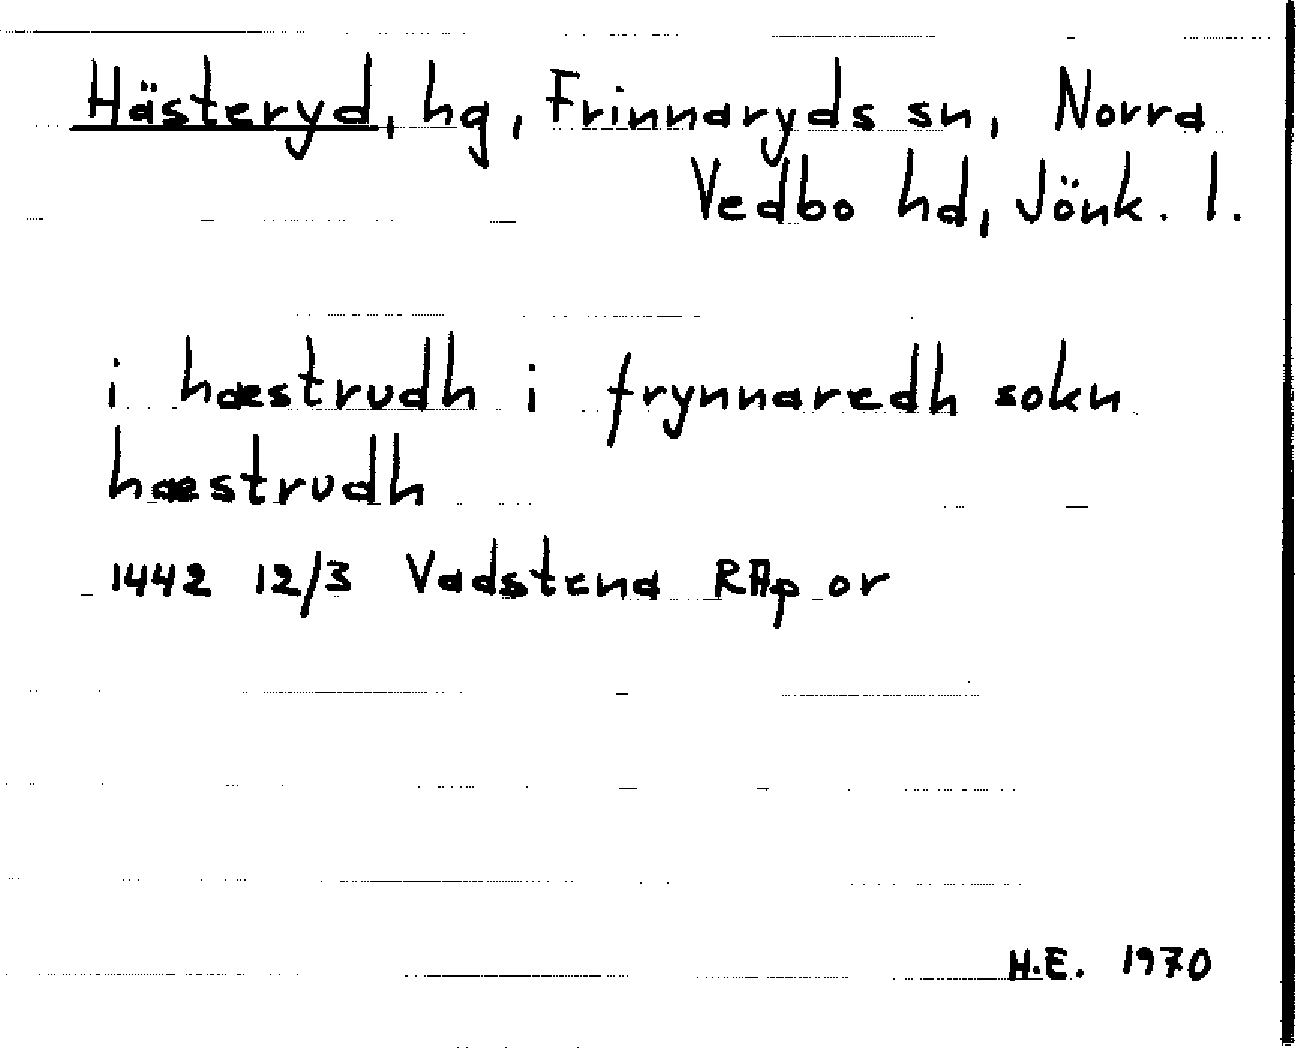 Hästeryd, hg, Frinnaryds sn, Norra
Vedbo hd, Jönk. l.
i hæstrudh i frynnaredh sokn
hæstrudh
1442 12/3 Vadstena RAp or
H.E. 1970